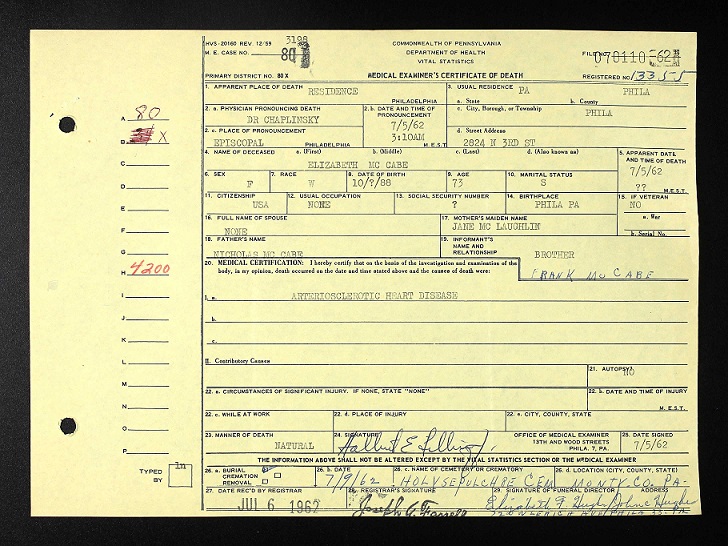 HVS-20160 REV. 12/59 3198
M. E. CASE NO. 80
COMMONWEALTH OF PENNSYLVANIA
DEPARTMENT OF HEALTH
VITAL STATISTICS
FILE NO. 070110-62
PRIMARY DISTRICT NO. 80 X
MEDICAL EXAMINER'S CERTIFICATE OF DEATH
REGISTERED NO. 13355
1. APPARENT PLACE OF DEATH RESIDENCE
PHILADELPHIA
3. USUAL RESIDENCE PA PHILA
a. State b. County
2. a. PHYSICIAN PRONOUNCING DEATH
DR CHAPLINSKY
2. b. DATE AND TIME OF PRONOUNCEMENT
7/5/62
3:10AM
M.E.S.T.
c. City, Borough, or Township
PHILA
2. c. PLACE OF PRONOUNCEMENT
EPISCOPAL PHILADELPHIA
d. Street Address
2824 N 3RD ST
4. NAME OF DECEASED a. (First) b. (Middle) c. (Last) d. (Also known as)
ELIZABETH MC CABE
5. APPARENT DATE AND TIME OF DEATH
7/5/62
?? M.E.S.T.
6. SEX
F
7. RACE
W
8. DATE OF BIRTH
10/?/88
9. AGE
73
10. MARITAL STATUS
S
11. CITIZENSHIP
USA
12. USUAL OCCUPATION
NONE
13. SOCIAL SECURITY NUMBER
?
14. BIRTHPLACE
PHILA PA
15. IF VETERAN
NO
a. War
b. Serial No.
16. FULL NAME OF SPOUSE
NONE
17. MOTHER'S MAIDEN NAME
JANE MC LAUGHLIN
18. FATHER'S NAME
NICHOLAS MC CABE
19. INFORMANT'S NAME AND RELATIONSHIP
BROTHER
FRANK MC CABE
20. MEDICAL CERTIFICATION: I hereby certify that on the basis of the investigation and examination of the
body, in my opinion, death occurred on the date and time stated above and the causes of death were:
I. a. ARTERIOSCLEROTIC HEART DISEASE
b.
c.
II. Contributory Causes
21. AUTOPSY?
NO
22. a. CIRCUMSTANCES OF SIGNIFICANT INJURY. IF NONE, STATE "NONE"
22. b. DATE AND TIME OF INJURY
M.E.S.T.
22. c. WHILE AT WORK
22. d. PLACE OF INJURY
22. e. CITY, COUNTY, STATE
23. MANNER OF DEATH
NATURAL
24. SIGNATURE
Halbert E. Fillinger
OFFICE OF MEDICAL EXAMINER
13TH AND WOOD STREETS
PHILA. 7, PA.
25. DATE SIGNED
7/5/62
THE INFORMATION ABOVE SHALL NOT BE ALTERED EXCEPT BY THE VITAL STATISTICS SECTION OR THE MEDICAL EXAMINER
26. a. BURIAL
CREMATION
REMOVAL
26. b. DATE
7/9/62
26. c. NAME OF CEMETERY OR CREMATORY
HOLY SEPULCHRE CEM
26. d. LOCATION (CITY, COUNTY, STATE)
MONTY CO. PA-
27. DATE REC'D BY REGISTRAR
JUL 6 1962
28. REGISTRAR'S SIGNATURE
Joseph G. Farrell
29. SIGNATURE OF FUNERAL DIRECTOR ADDRESS
A 80
B X
C
D
E
F
G
H 4200
I
J
K
L
M
N
O
P
TYPED BY